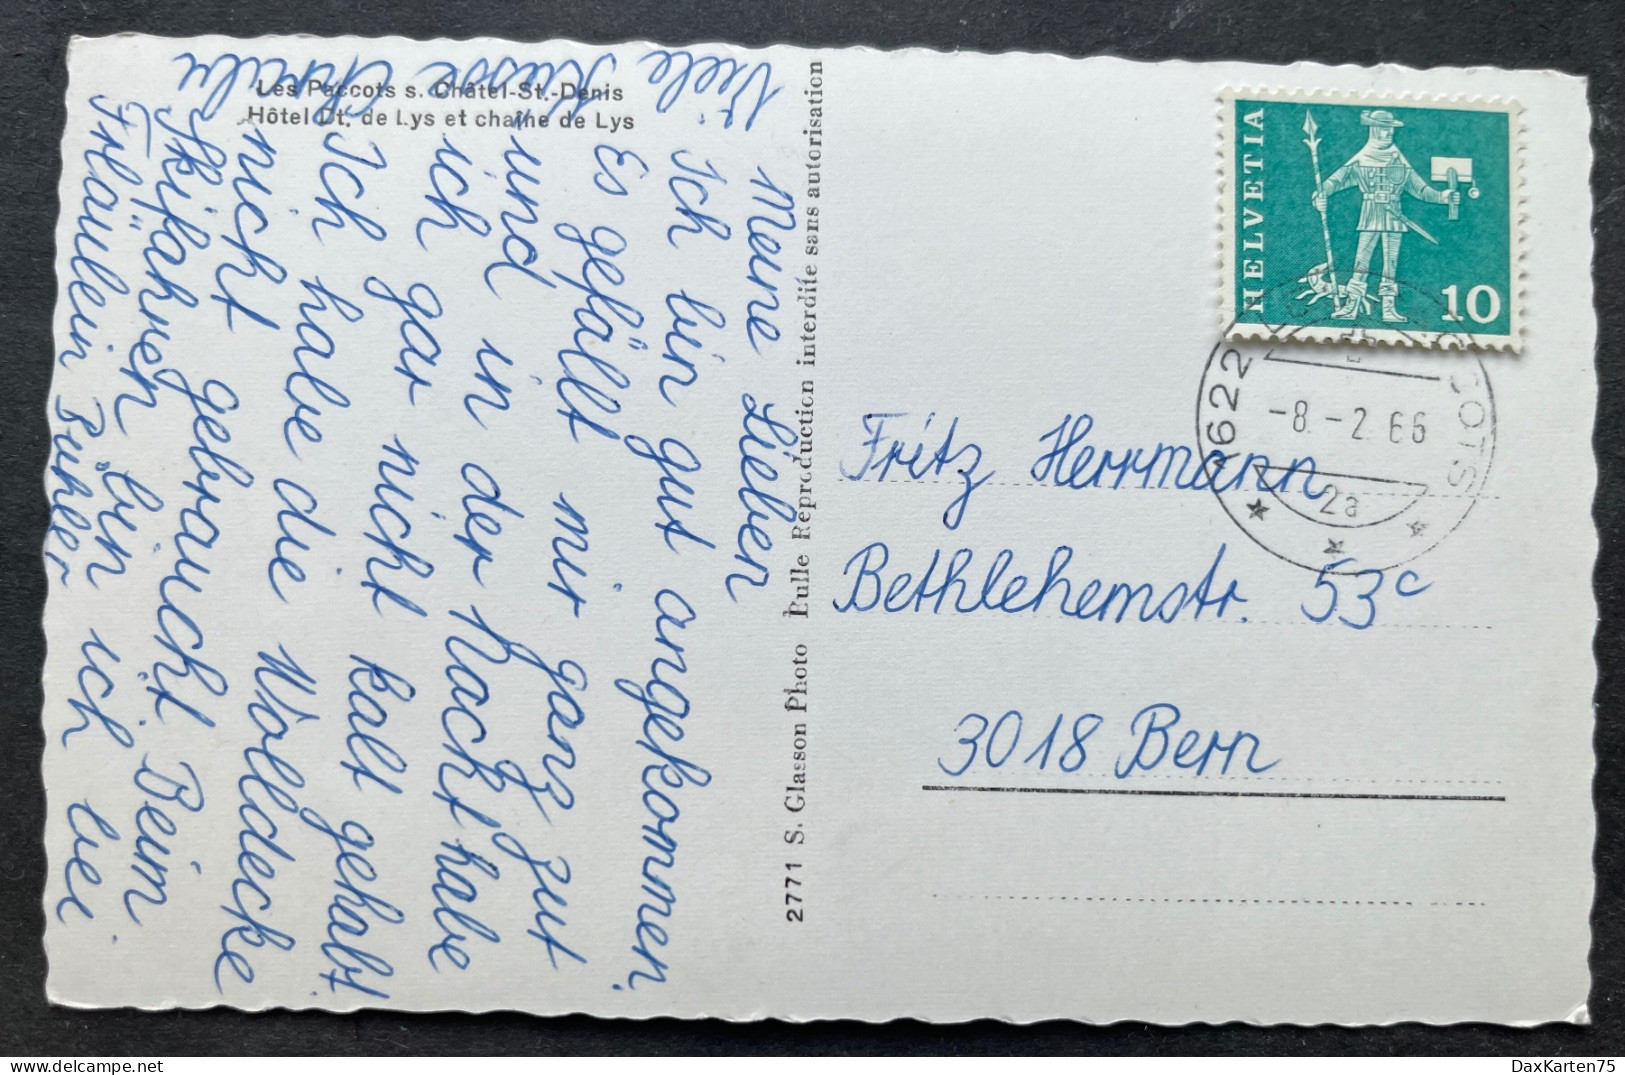 Les Paccots s. Châtel-St.-Denis
Hôtel Dt. de Lys et chaîne de Lys
Meine Lieben
Ich bin gut angekommen.
Es gefällt mir ganz gut
und in der Nacht habe
ich gar nicht kalt gehabt.
Ich habe die Wolldecke
nicht gebraucht. Beim
Skifahren bin ich bei
Fräulein Bühler.
Viele Küsse
2771 S. Glasson Photo Bulle Reproduction interdite sans autorisation
HELVETIA
10
1622
-8.-2.66
2a
Fritz Herrmann
Bethlehemstr. 53c
3018 Bern
DaxKarten75